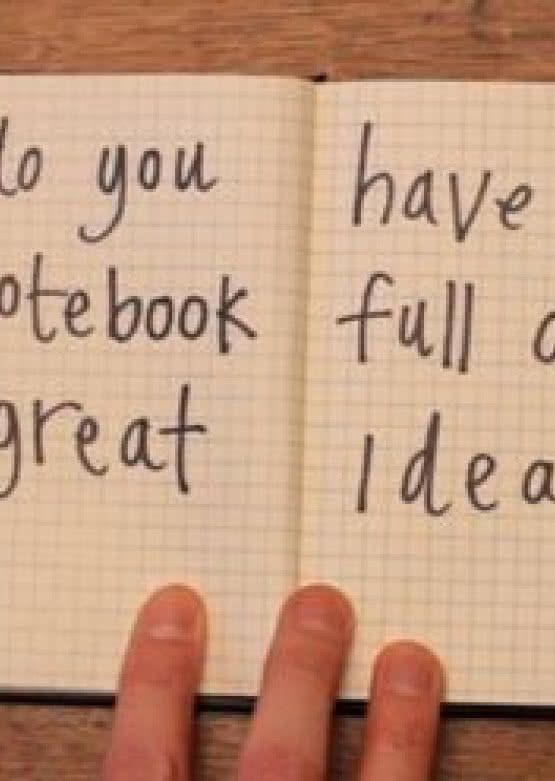 do you have
otebook full o
great Idea